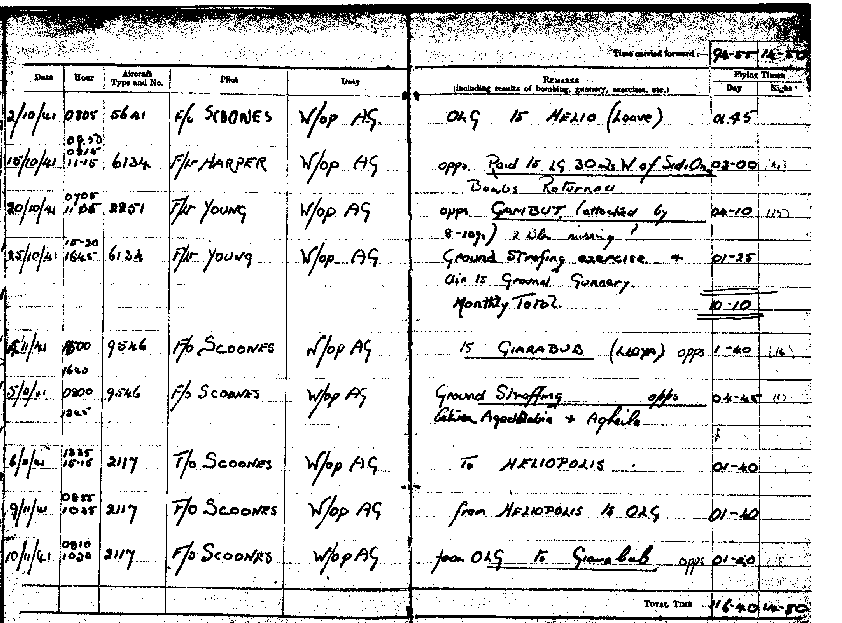 Time carried forward:- 94-55 14-50
Date Hour Aircraft Type and No. Pilot Duty Remarks (including results of bombing, gunnery, exercises, etc.) Flying Times
Day Night
2/10/41 0805 5641 F/L SCOONES W/op AG. OLG to HELIO (Leave)
15/10/41 11-15 6134 F/Lt HARPER W/op AG opps Raid to LG 30 mls W of Sidi Omar 03-00
Bombs Returned
20/10/41 0705 YOUNG W/op AG opps GAMBUT (attacked by 04-10
8-109s) missing
25/10/41 15-20 1645 6134 YOUNG W/op AG Ground Strafing exercise + 01-25
Air to Ground Gunnery.
Monthly Total. 10-10
9546 F/O SCOONES W/op AG to GIARABUB (LIBYA) opps 1-40
1640
0800 9546 F/O SCOONES W/op AG Ground Straffing opps 04-45
1245 Agedabia + Agheila
15-15 2117 F/O SCOONES W/op AG To HELIOPOLIS 01-40
9/11/41 0855 1035 2117 F/O SCOONES W/op AG from HELIOPOLIS to OLG 01-40
10/11/41 0810 2117 F/O SCOONES W/op AG from OLG to Giarabub opps
Total Time 116-40 14-50